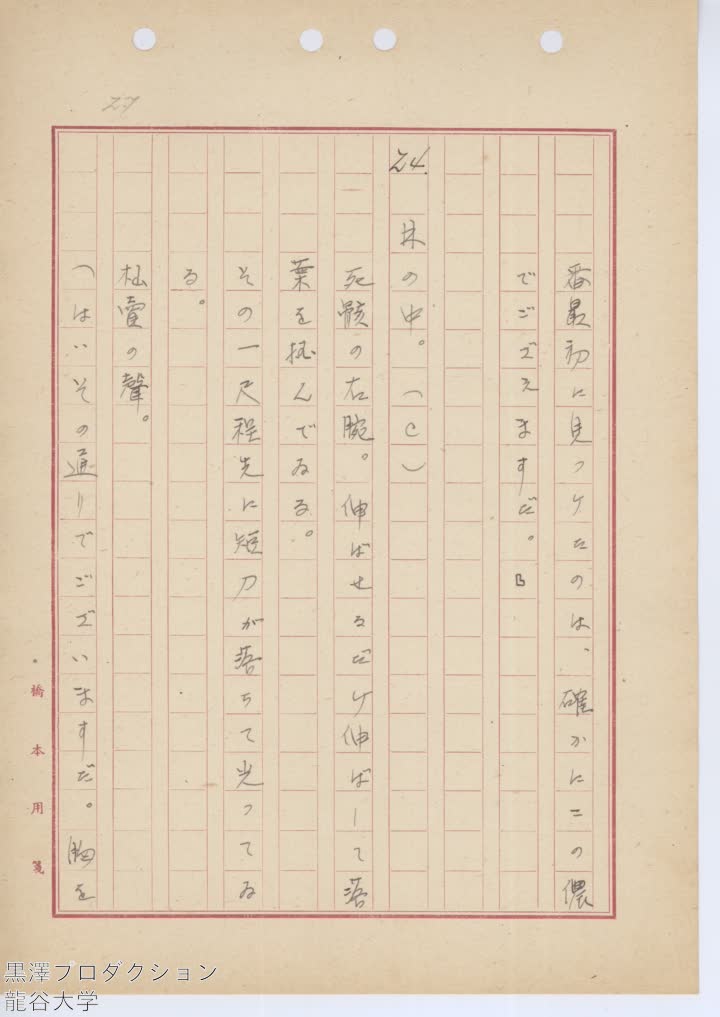 27
番最初に見つけたのは、確かにこの儂
でごぜえますだ。」
24. 林の中。(C)
死骸の右腕。伸ばせるだけ伸ばして落
葉を掴んでゐる。
その一尺程先に短刀が落ちて光ってゐ
る。
杣賣の聲。
「はい、その通りでございますだ。胸を
橋本用箋
黒澤プロダクション
龍谷大学